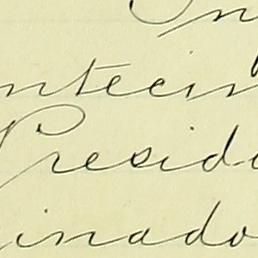 In
ntecin
Presid
inado